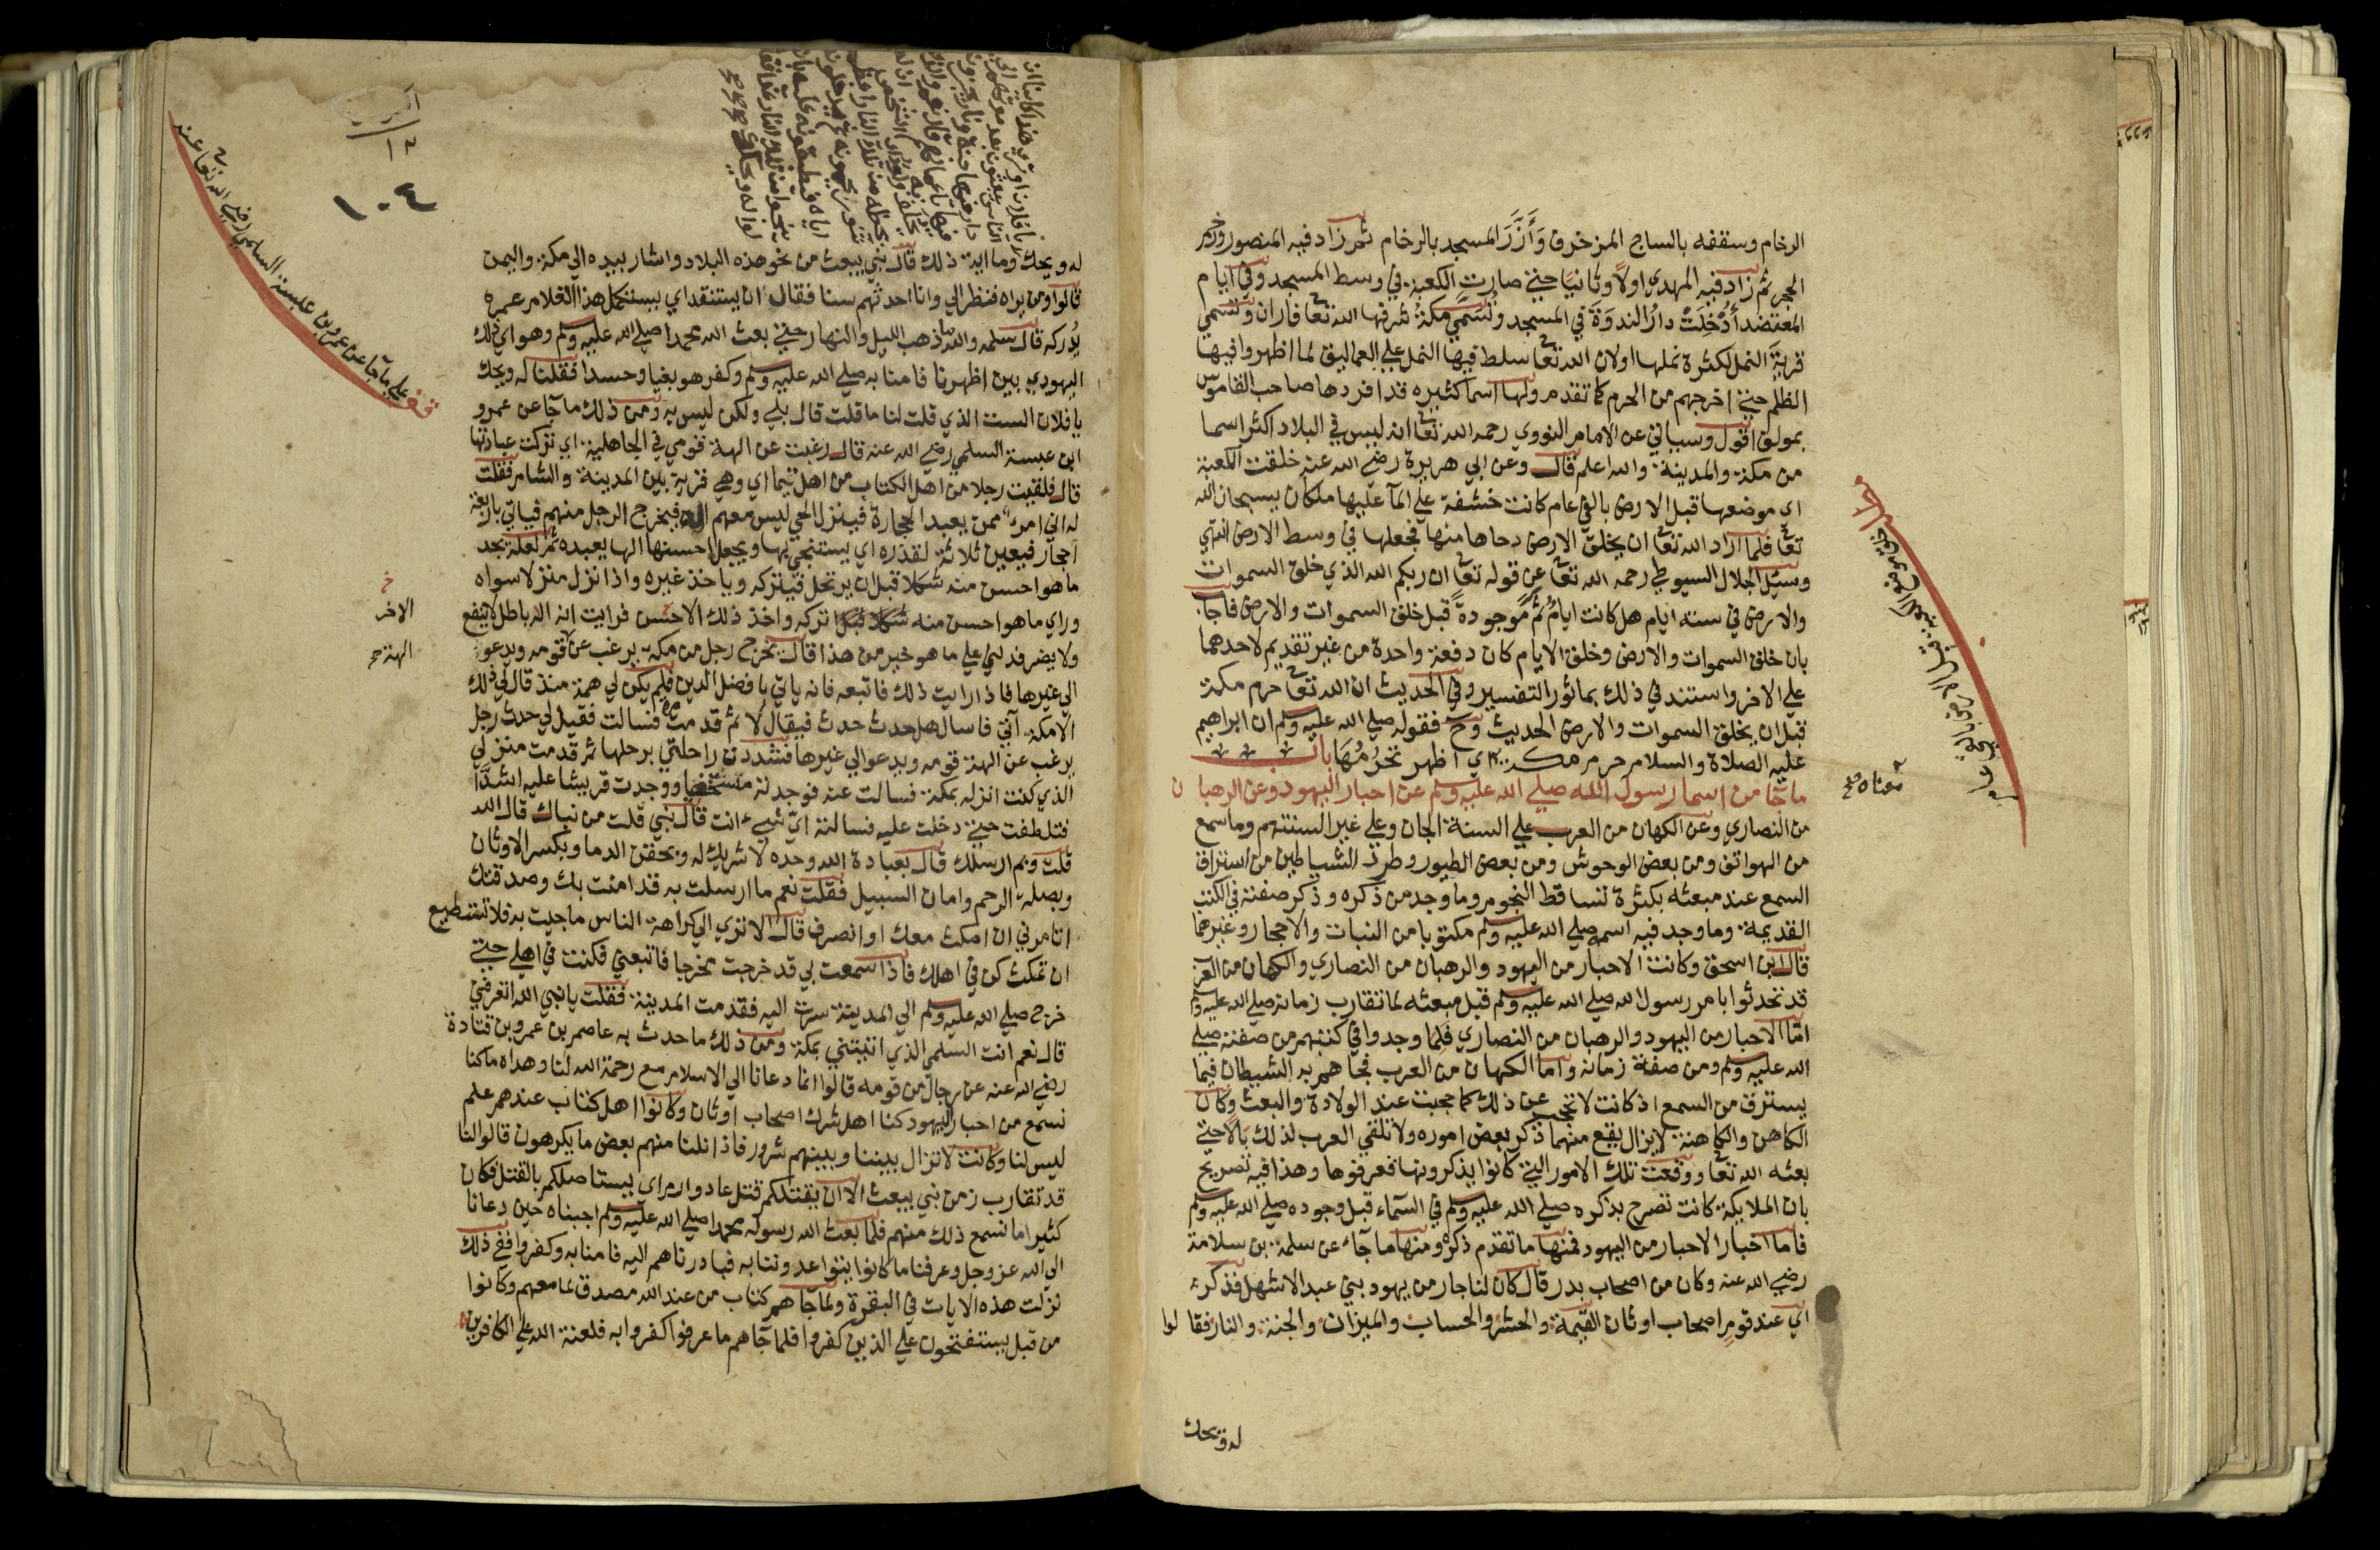 الرخام وسقفه بالساج المزخرف وَأَزَّرَ المسجد بالرخام ثم زاد فيه المنصور ورخم
الحجر ثم زاد فيه المهدي اولاً وثانياً حتي صارت الكعبة في وسط المسجد وفي ايام
المعتضد أُدْخِلَتْ دارُ الندوَة في المسجد وتُسَمَّي مكةُ شرفها الله تعا فاران وتسمي
قريةَ النمل لكثرة نملها اولان الله تعا سلط فيها النمل علي العماليق لما اظهروا فيها
الظلم حتي اخرجهم من الحرم كما تقدم ولها اسما كثيره قد افردها صاحب القاموس
بمولف اقول وسياتي عن الامام النووي رحمه الله تعا انه ليس في البلاد اكثر اسما
من مكة والمدينة والله اعلم قال وعن ابي هريرة رضي الله عنه خلقت الكعبة
اي موضعها قبل الارض بالفي عام كانت خشفة علي الما عليها ملكان يسبحان الله
تعا فلما اراد الله تعا ان يخلق الارض دحاها منها فجعلها في وسط الارض انتهي
وسئل الجلال السيوطي رحمه الله تعا عن قوله تعا ان ربكم الله الذي خلق السموات
والارض في ستة ايام هل كانت ايامُ ثَمَّ موجودةً قبل خلق السموات والارض فاجاب
بان خلق السموات والارض وخلق الايام كان دفعة واحدة من غير تقديم لاحدهما
علي الاخر واستند في ذلك بماثور التفسير وفي الحديث ان الله تعا حرم مكة
قبل ان يخلق السموات والارض الحديث وح فقوله صلي الله عليه وسلم ان ابراهيم
عليه الصلاة والسلام حرم مكة اي اظهر تحرُمُهَا باب
ما جا من اسما رسول الله صلي الله عليه وسلم عن احبار اليهود وعن الرهبان
من النصاري وعن الكهان من العرب علي السنة الجان وعلي غير السنتهم وما سمع
من الهواتف ومن بعض الوحوش ومن بعض الطيور وطرد الشياطين من استراق
السمع عند مبعثه بكثرة تساقط النجوم وما وجد من ذكره وذكر صفته في الكتب
القديمة وما وجد فيه اسمه صلي الله عليه وسلم مكتوبا من النبات والاحجار وغيرهما
قال ابن اسحق وكانت الاحبار من اليهود والرهبان من النصاري والكهان من العرب
قد تحدثوا بامر رسول الله صلي الله عليه وسلم قبل مبعثه لما تقارب زمانه صلي الله عليه وسلم
امّا الاحبار من اليهود والرهبان من النصاري فلما وجدوا في كتبهم من صفته صلي
الله عليه وسلم ومن صفة زمانه واما الكهان من العرب فجاهم به الشيطان فيما
يسترق من السمع اذ كانت لا تحجب عن ذلك كما حجبت عند الولادة والبعث وكان
الكاهن والكاهنة لايزال يقع منهما ذكر بعض اموره ولا تلقي العرب لذلك بالا حتي
بعثه الله تعا ووقعت تلك الامور التي كانوا يذكرونها فعرفوها وهذا فيه تصريح
بان الملايكة كانت تصرح بذكره صلي الله عليه وسلم في السماء قبل وجوده صلي الله عليه وسلم
فاما اخبار الاحبار من اليهود فمنها ما تقدم ذكره ومنها ما جاء عن سلمة بن سلامة
رضي الله عنه وكان من اصحاب بدر قال كان لنا جار من يهود بني عبد الاشهل فذكر
اي عند قوم اصحاب اوثان القيمة والحشر والحساب والميزان والجنة والنار فقالوا
له ويحك
معناه صح
له ويحك وما اية ذلك قال نبي يبعث من نحو هذه البلاد واشار بيده الي مكة واليمن
قالوا ومن يراه فنظر الي وانا احدثهم سنا فقال ان يستنفد اي يستكمل هذا الغلام عمره
يُدركه قال سلمه والله ما ذهب الليل والنهار حتي بعث الله محمدا صلي الله عليه وسلم وهو اي ذلك
اليهودي بين اظهرنا فامنا به صلي الله عليه وسلم وكفر هو بغيا وحسدا فقلنا له ويحك
يا فلان الست الذي قلت لنا ما قلت قال بلي ولكن ليس به ومن ذلك ما جا عن عمرو
ابن عبسة السلمي رضي الله عنه قال رغبت عن الهة قومي في الجاهلية اي تركت عبادتها
قال فلقيت رجلا من اهل الكتاب من اهل تيما اي وهي قرية بين المدينة والشام فقلت
له اني امرء ممن يعبد الحجارة فينزل الحي ليس معهم اله فيخرج الرجل منهم فياتي باربعة
احجار فيعين ثلاثة لقذره اي يستنجي بها ويجعل احسنها الها يعبده ثم لعله يجد
ما هو احسن منه شكلا قبل ان يرتحل فيتركه وياخذ غيره واذا نزل منزلا سواه
وراي ما هو احسن منه تركه واخذ ذلك الاحسن فرايت انه اله باطل لا ينفع
ولا يضر فدلني علي ما هو خير من هذا قال يخرج رجل من مكة يرغب عن قومه ويدعو
الي غيرها فاذا رايت ذلك فاتبعه فانه ياتي بافضل الدين فلم يكن لي همة منذ قال لي ذلك
الا مكة آتي فاسال هل حدث حدث فيقال لا ثم قدمت مرة فسالت فقيل لي حدث رجل
يرغب عن الهة قومه ويدعو الي غيرها فشددن راحلتي برحلها ثم قدمت منزلي
الذي كنت انزله بمكة فسالت عنه فوجدته مستخفيا ووجدت قريشا عليه اشدَّا
فتلطفت حتي دخلت عليه فسالته ايّ شيء انت قال نبي قلت من نباك قال الله
قلت وبم ارسلك قال بعبادة الله وحده لا شريك له وبحقن الدما وبكسر الاوثان
وبصلة الرحم وامان السبيل فقلت نعم ما ارسلت به قد امنت بك وصدقتك
اتامرني ان امكث معك او انصرف قال الا تري الي كراهة الناس ما جيت به فلا تستطيع
ان تمكث كن في اهلك فاذا سمعت بي قد خرجت مخرجا فاتبعني فكنت في اهلي حتي
خرج صلي الله عليه وسلم الي المدينة سرت اليه فقدمت المدينة فقلت يا نبي الله اتعرفني
قال نعم انت السلمي الذي اتيتني بمكة ومن ذلك ما حدث به عاصم بن عمرو بن قتادة
رضي الله عنه عن رجال من قومه قالوا انما دعانا الي الاسلام مع رحمة الله لنا وهداه ما كنا
نسمع من احبار اليهود كنا اهل شرك اصحاب اوثان وكانوا اهل كتاب عندهم علم
ليس لنا وكانت لا تزال بيننا وبينهم شرور فاذا نلنا منهم بعض ما يكرهون قالوا لنا
قد تقارب زمن نبي يبعث الان يقتلكم قتل عاد وارم اي يستاصلكم بالقتل فكان
كثيرا ما نسمع ذلك منهم فلما بعث الله رسوله محمدا صلي الله عليه وسلم اجبناه حين دعانا
الي الله عز وجل وعرفنا ما كانوا يتواعدوننا به فبادرناهم اليه فامنا به وكفروا ففي ذلك
نزلت هذه الايات في البقرة ولما جاهم كتاب من عند الله مصدق لما معهم وكانوا
من قبل يستفتحون علي الذين كفروا فلما جاهم ما عرفوا كفروا به فلعنة الله علي الكافرين
الاخر
الهة صح
١٠٤